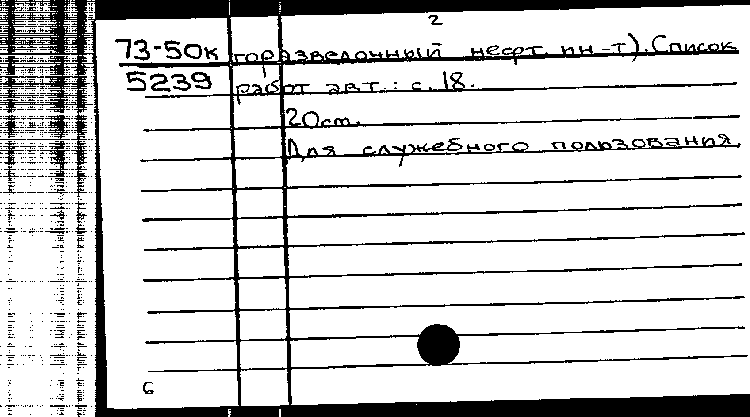 2
73-50к горазведочный нефт. ин-т). Список
5239 работ авт.: с. 18.
20см.
Для служебного пользования.
6